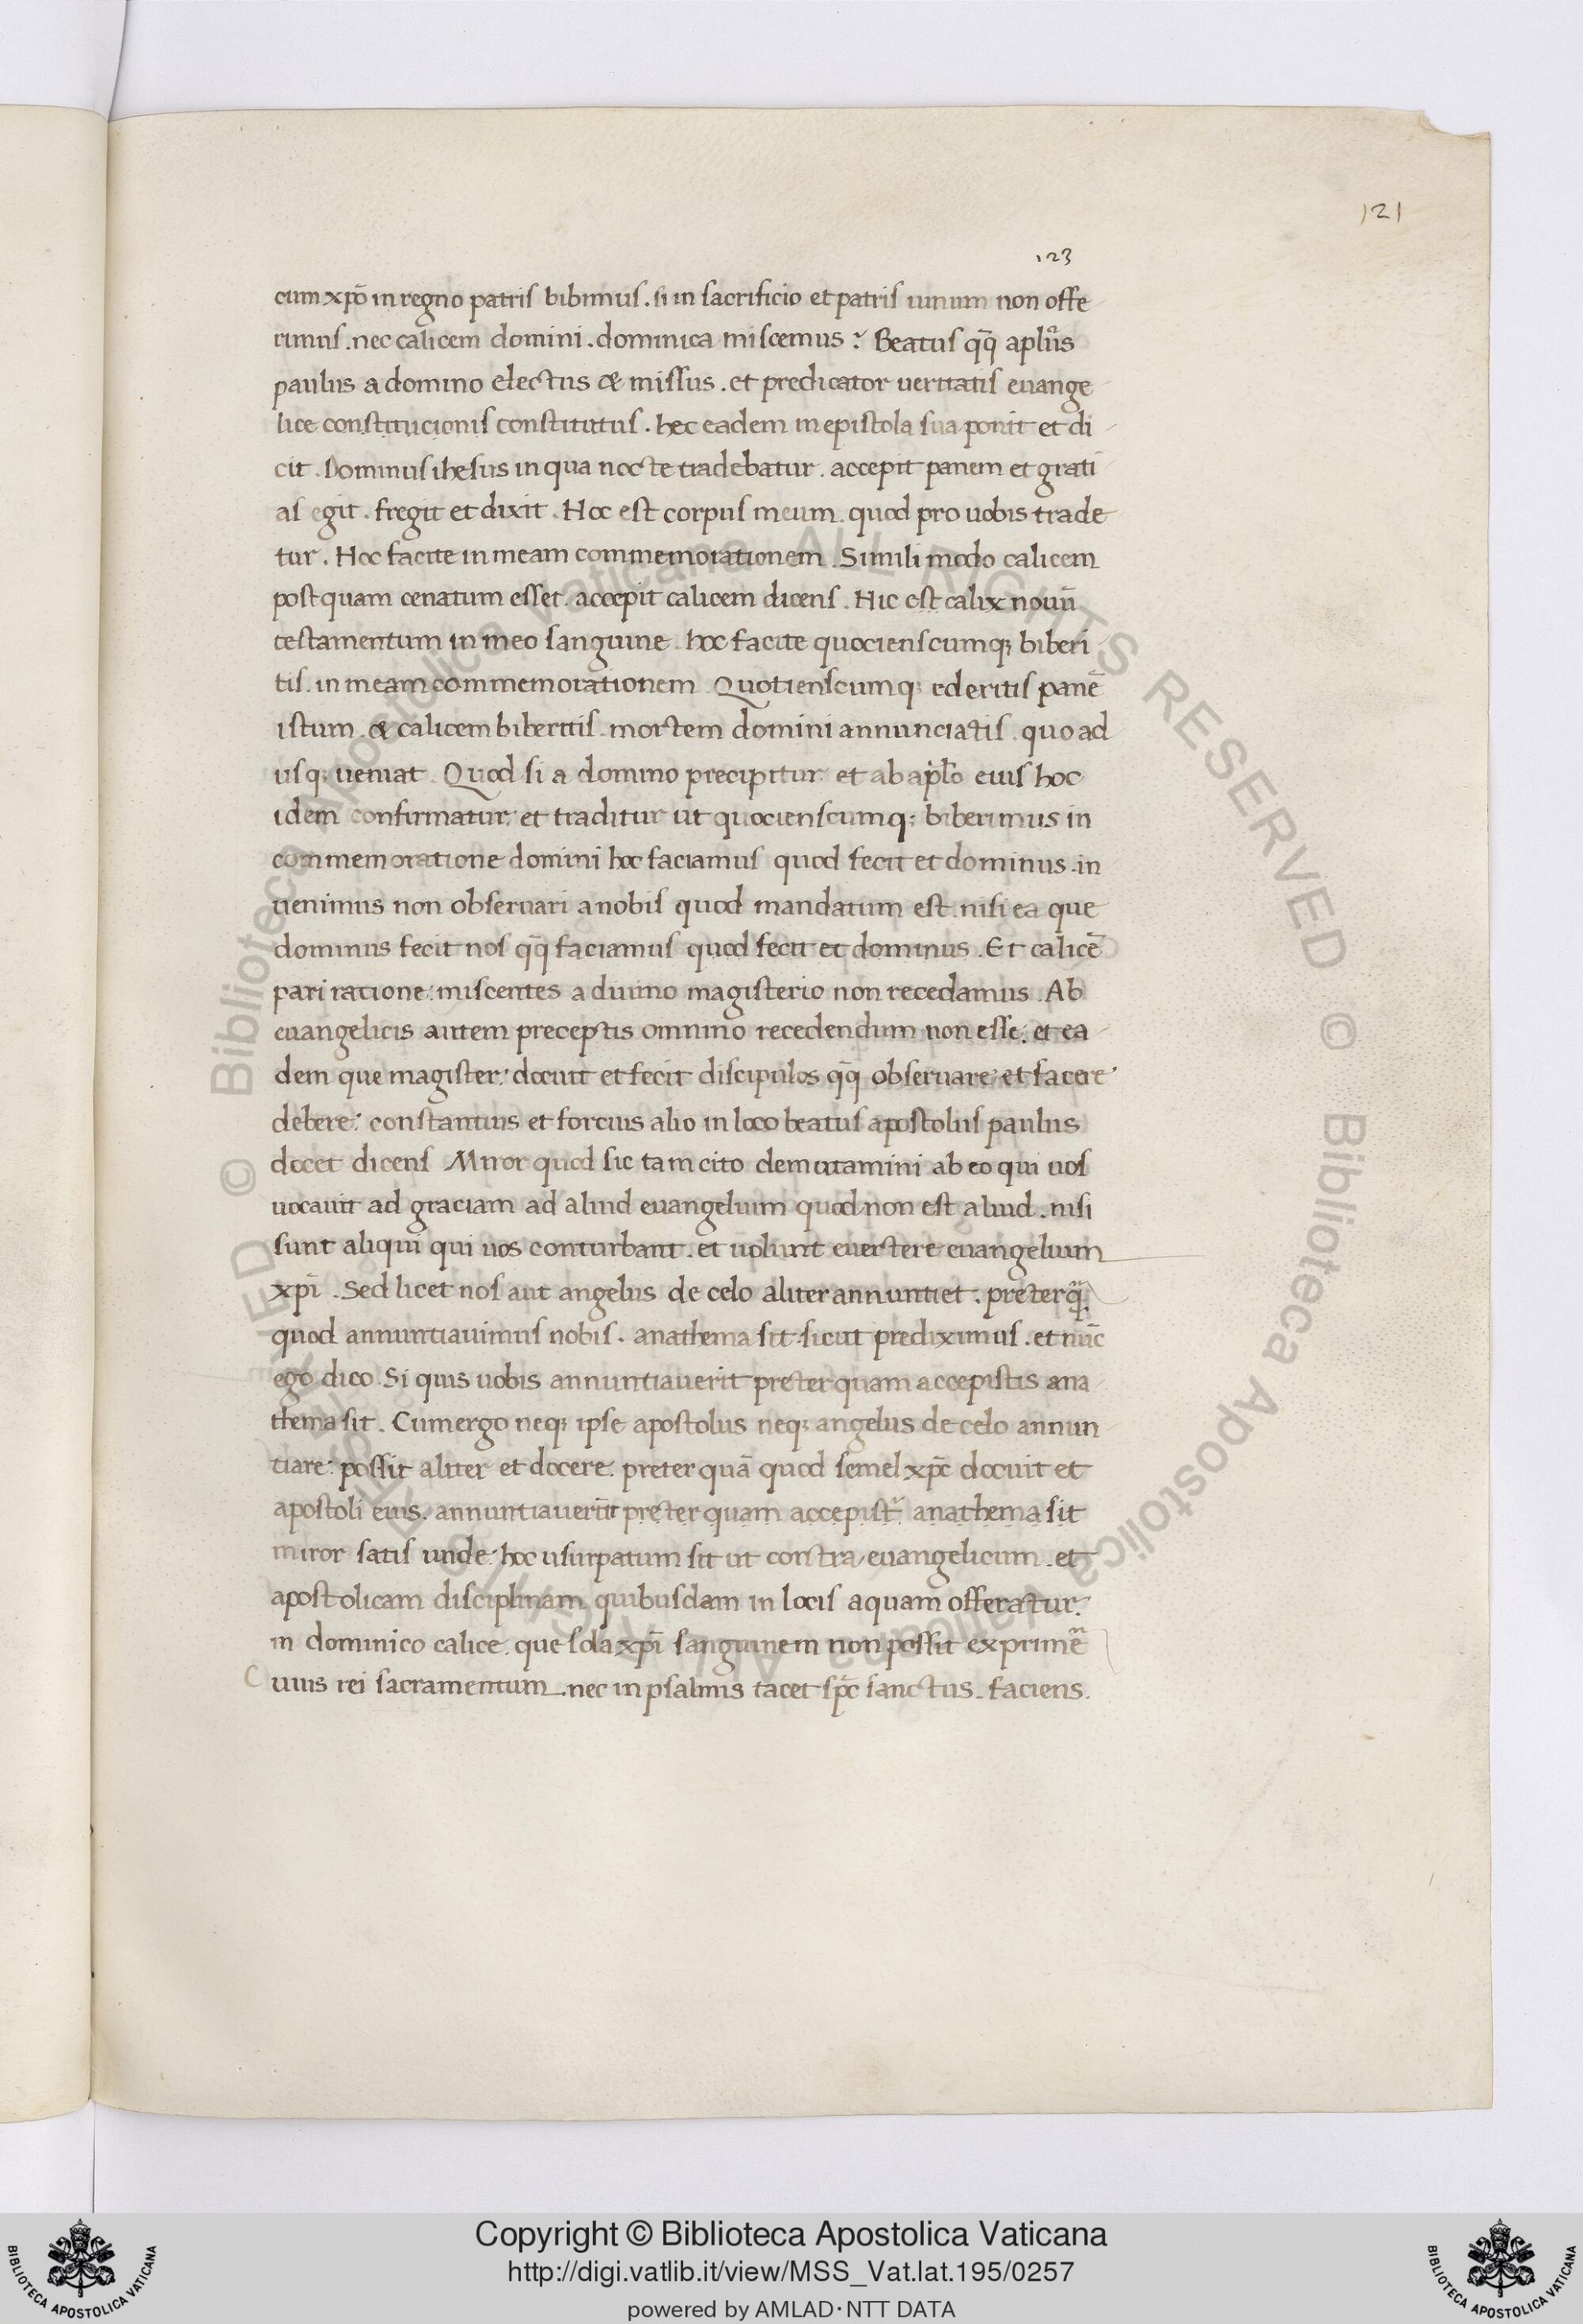 121
123
cum xp̄o in regno patris bibimus. si in sacrificio et patris uinum non offe
rimus. nec calicem domini. dominica miscemus? Beatus qq̄ aplūs
paulus a domino electus & missus. et predicator ueritatis euange
lice constitucionis constitutus. hec eadem in epistola sua ponit et di
cit. Dominus ihesus in qua nocte tradebatur. accepit panem et grati
as egit. fregit et dixit. Hoc est corpus meum. quod pro uobis trade
tur. Hoc facite in meam commemorationem. Simili modo calicem
postquam cenatum esset. accepit calicem dicens. Hic est calix nouū
testamentum in meo sanguine. hoc facite quocienscumq; biberi
tis. in meam commemorationem. Quotienscumq; ederitis panē
istum. & calicem biberitis. mortem domini annunciatis. quo ad
usq; ueniat. Quod si a domino precipitur et ab apl̄o eius hoc
idem confirmatur: et traditur ut quocienscumq; biberimus in
commemoratione domini hoc faciamus quod fecit et dominus. in
uenimus non obseruari a nobis quod mandatum est. nisi ea que
dominus fecit nos qq̄ faciamus quod fecit et dominus. Et calicē
pari ratione: miscentes a diuino magisterio non recedamus. Ab
euangelicis autem preceptis omnino recedendum non esse: et ea
dem que magister: docuit et fecit discipulos qq̄ obseruare: et facere
debere: constantius et forcius alio in loco beatus apostolus paulus
docet dicens Miror quod sic tam cito demutamini ab eo qui uos
uocauit ad graciam ad aliud euangelium quod non est aliud. nisi
sunt aliqui qui uos conturbant. et uolunt euertere euangelium
xpī. Sed licet nos aut angelus de celo aliter annuntiet. preterq̄
quod annuntiauimus nobis. anathema sit. sicut prediximus. et nūc
ego dico. Si quis uobis annuntiauerit preter quam accepistis ana
thema sit. Cum ergo neq; ipse apostolus neq; angelus de celo annun
tiare: possit aliter et docere: preter quā quod semel xpc̄ docuit et
apostoli eius. annuntiauerīt preter quam accepist̄ anathema sit
miror satis unde: hoc usurpatum sit ut contra euangelicum. et
apostolicam disciplinam quibusdam in locis aquam offeratur:
in dominico calice. que sola xpī sanguinem non possit exprimē
Cuius rei sacramentum. nec in psalmis tacet spc̄ sanctus. faciens.
© Biblioteca Apostolica Vaticana ALL RIGHTS RESERVED © Biblioteca Apostolica Vaticana ALL RIGHTS RESERVED
BIBLIOTECA APOSTOLICA VATICANA
Copyright © Biblioteca Apostolica Vaticana
http://digi.vatlib.it/view/MSS_Vat.lat.195/0257
powered by AMLAD·NTT DATA
BIBLIOTECA APOSTOLICA VATICANA